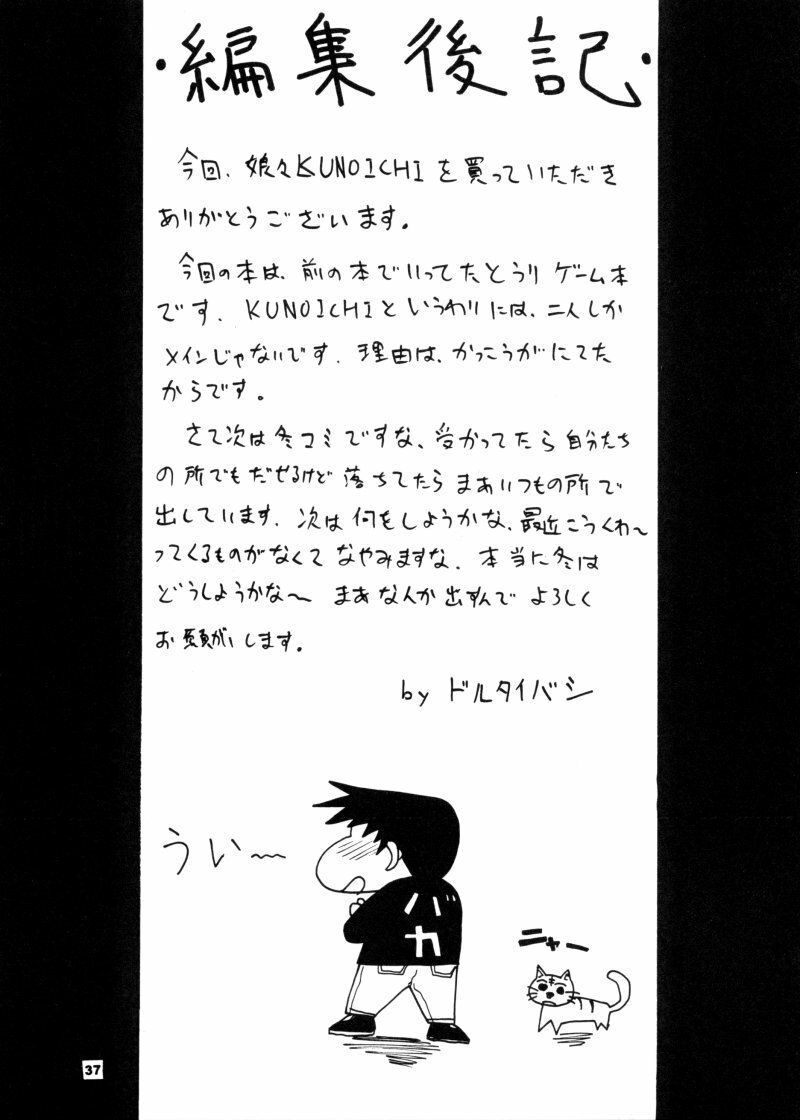 ・編集後記・
今回、娘々KUNOICHIを買っていただき
ありがとうございます。
今回の本は、前の本でいってたとうり ゲーム本
です. KUNOICHIというわりには、二人しか
メインじゃないです. 理由は、かっこうがにてた
からです。
さて次は冬コミですな、受かってたら自分たち
の所でもだせるけど 落ちてたら まあいつもの所で
出しています. 次は何をしようかな、最近こうくわ〜
ってくるものがなくて なやみますな. 本当に冬は
どうしようかな〜 まあなんか出すんで よろしく
お願がいします。
by ドルタイバシ
うい〜
バカ
ニャー
37